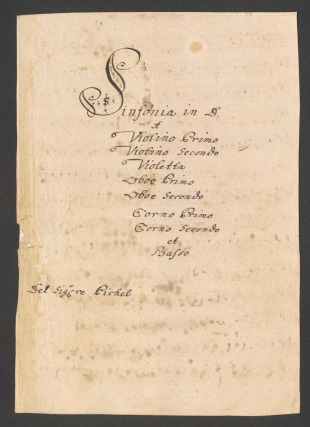 Sinfonia in D.
A
Violino Primo
Violino Secondo
Violetta
Oboe Primo
Oboe Secondo
Corno Primo
Corno Secondo
et
Basso
Del Sig:re Pichel